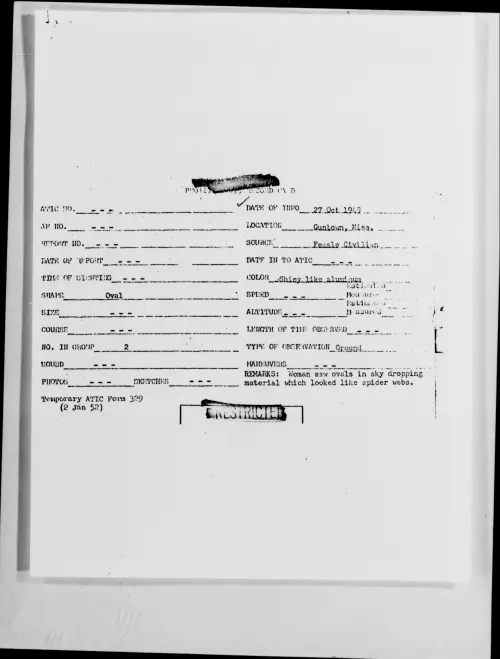 RECORD CARD
ATIC NO. - - - DATE OF INFO 27 Oct
AF NO. - - - LOCATION Guntown, Miss.
REPORT NO. - - - SOURCE Female Civilian
DATE OF REPORT - - - DATE IN TO ATIC - - -
TIME OF SIGHTING - - - COLOR Shiny like aluminum
Estimated
SHAPE Oval SPEED - - - Measured
Estimated
SIZE - - - ALTITUDE - - - Measured
COURSE - - - LENGTH OF TIME OBSERVED - - -
NO. IN GROUP 2 TYPE OF OBSERVATION Ground
SOUND - - - MANEUVERS - - -
REMARKS: Woman saw ovals in sky dropping
PHOTOS - - - SKETCHES - - - material which looked like spider webs.
Temporary ATIC Form 329
(2 Jan 52)
RESTRICTED